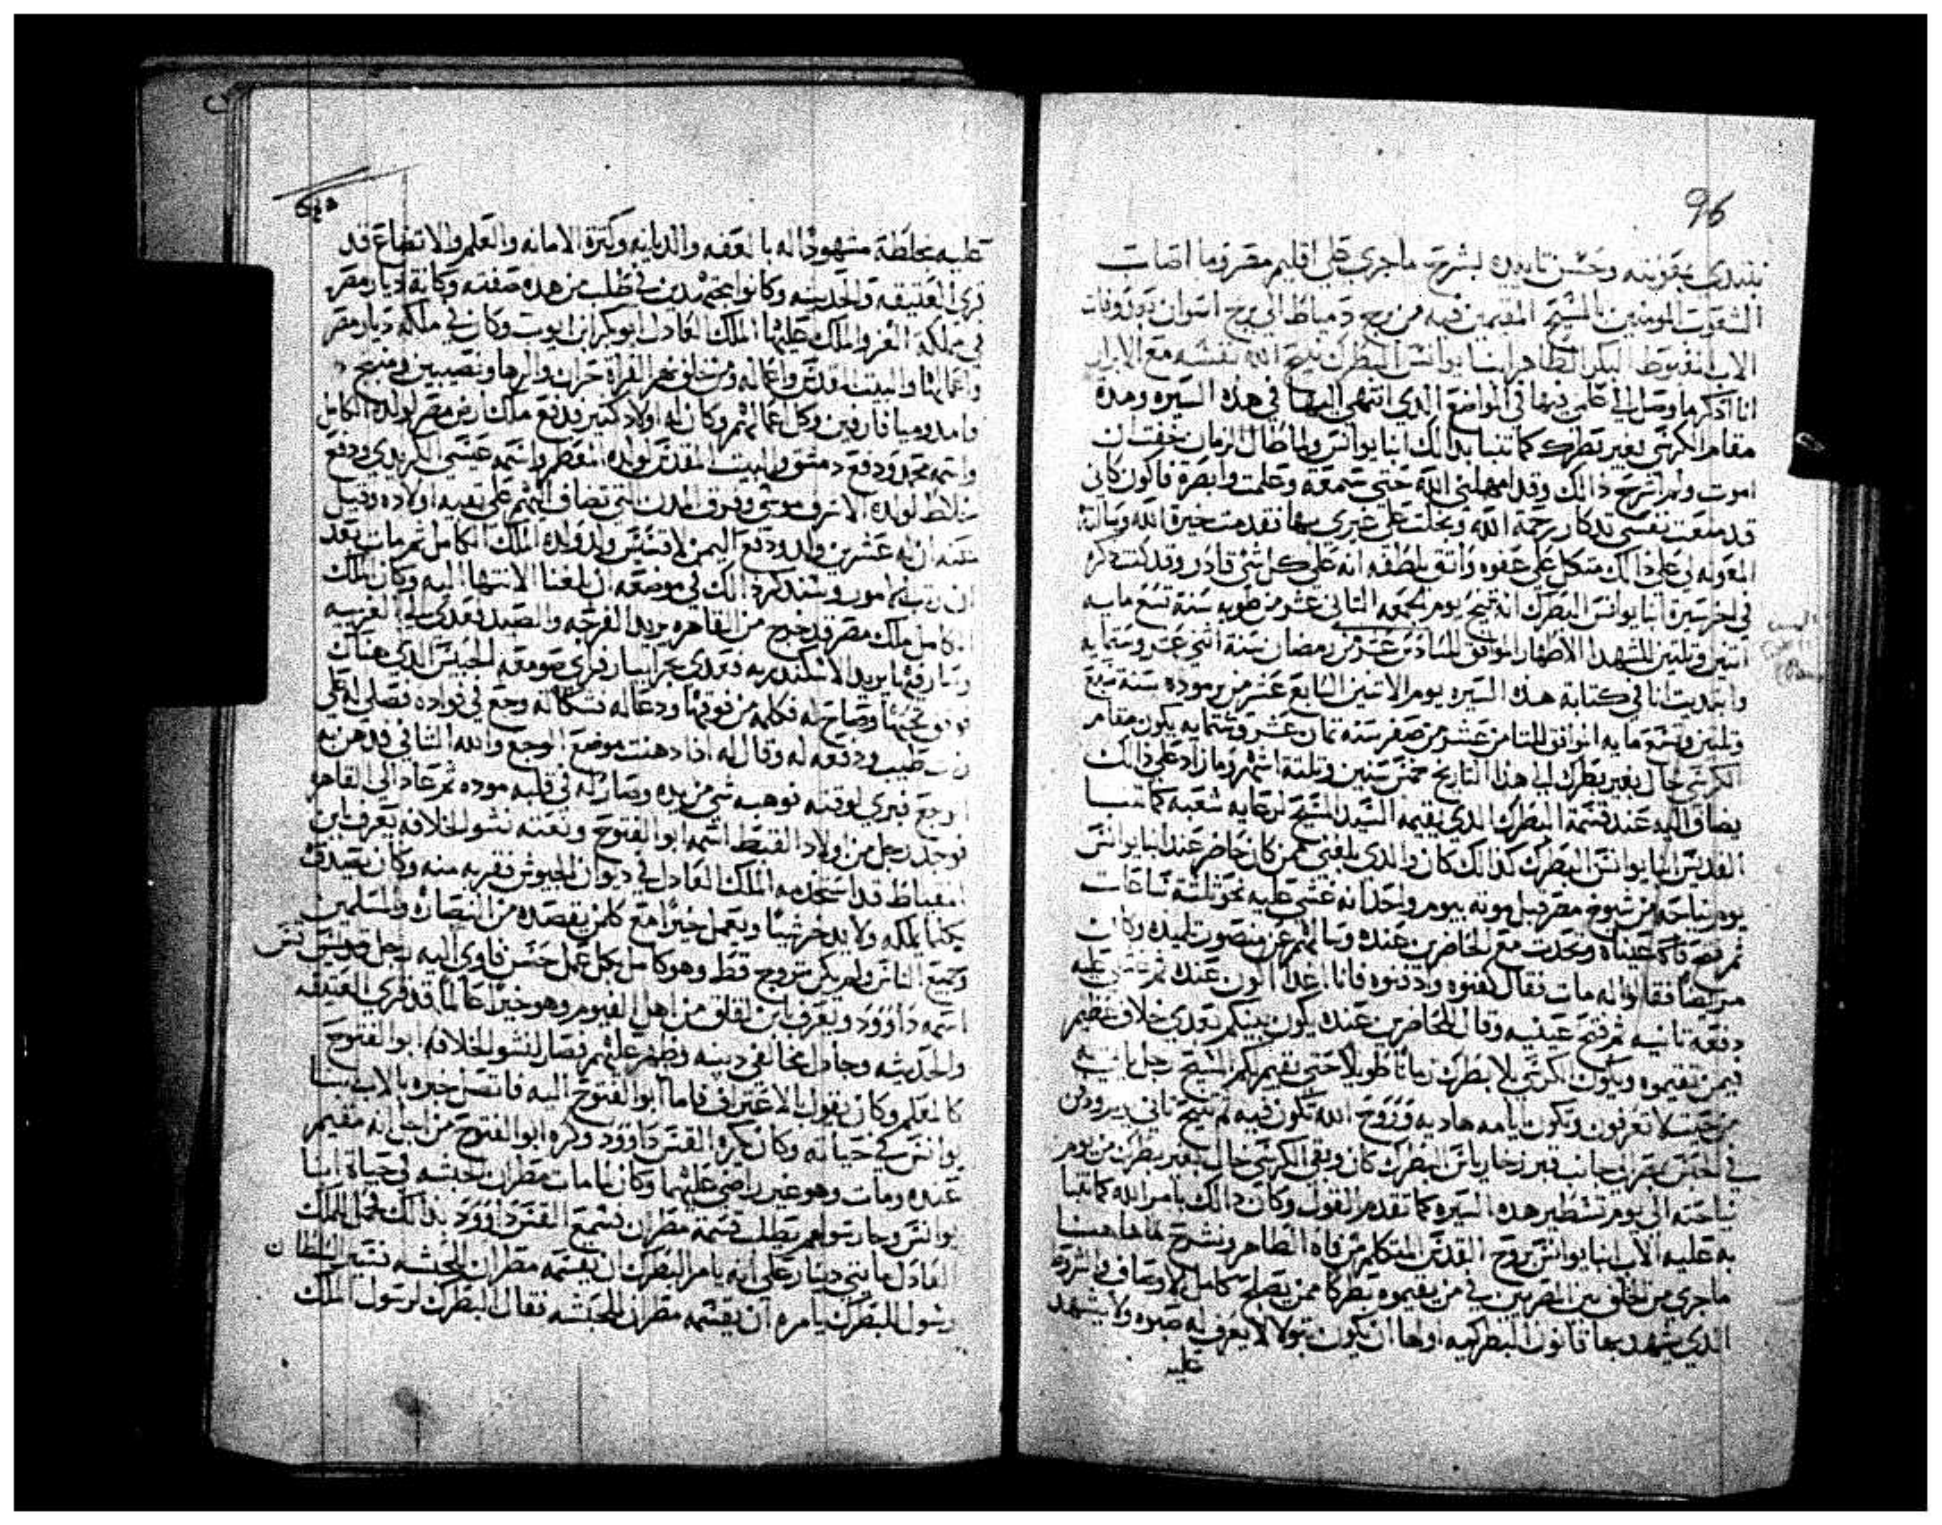 96
نبتدي بمعونته وحسن تاييده بشرح ماجري علي اقليم مصر وما اصاب
الشعوب المومنين بالمسيح المقيمين فيه من ريح دمياط الي ريح اسوان
الاب المغبوط البكر الطاهر انبا يوانس البطرك نيح الله نفسه مع الابرار
انا اذكر ما وصل الي علمي فيها في المواضع الذي انتهي اليها في هذه السيره ومدة
مقام الكرسي بغير بطرك كما تنبا بذلك انبا يوانس ولما طال الزمان خفت ان
اموت ولم اشرح ذالك وقد امهلني الله حتي سمعته وعلمت وابصره فاكون كاني
قد منعت نفسي تدكار رحمة الله وبخلت علي غيري بها فقدمت خيرة الله وسالته
المعونه لي علي ذالك متكل علي عفوه واثق بلطفه انه علي كل شي قادر وقد كنت ذكرت
في اخر سيرة انبا يوانس البطرك انه تنيح يوم الجمعه الثاني عشر من طوبه سنة تسع مايه
اتنين وتلتين للشهدا الاطهار الموافق للسادس عشر من رمضان سنة اثني عشر وستمايه
وابتديت انا في كتابة هذه السيره يوم الاتنين السابع عشر من برموده سنة سبع
وتلتين وتسع مايه الموافق للتامن عشر من صفر سنه تمان عشر وستمايه يكون مقام
الكرسي خال بغير بطرك الي هذا التاريخ خمس سنين وتلتة اشهر وما زاد علي ذالك
يضاف اليه عند قسمة البطرك الذي يقيمه السيد المسيح لرعاية شعبه كما تنبا
القديس انبا يوانس البطرك كذالك كان والذي بلغني ممن كان حاضر عند انبا يوانس
يوم نياحته من شيوخ مصر قبل موته بيوم واحد انه غشي عليه نحو تلتة ساعات
ثم فتح عيناه وتحدت مع الحاضرين عنده وسالهم عن منصور تلميده وكان
مريضا فقالوا له مات فقال كفنوه وادفنوه فانا غدا اكون عنده ثم غشي عليه
دفعة تانيه ثم فتح عينيه وقال للحاضرين عنده يكون بينكم بعدي خلاف عظيم
فيمن تقيموه ويكون الكرسي بلا بطرك زمانا طويلا حتي يقيم لكم المسيح رجل ياتي به
من حيث لا تعرفون وتكون ايامه هاديه وروح الله تكون فيه ثم تنيح تاني يوم ودفن
في الحبش بمصر الي جانب قبر زخارياس البطرك كان وبقي الكرسي خال بغير بطرك من يوم
نياحته الي يوم تسطير هذه السيره كما تقدم القول وكان ذالك بامر الله كما تنبا
به عليه الاب انبا يوانس بروح القدس المتكلم من فاه الطاهر ونشرح هاهنا
ماجري من الخلف بين المصريين في من يقيموه بطركا ممن يصلح كامل الاوصاف في الشروط
الذي يشهد بها قانون البطركيه اولها ان يكون بتولا لا يعرف له صبوه ولا يشهد
عليه
عليه بغلطة مشهودا له بالعفه والديانه وكثرة الامانه والعلم والاتضاع قد
قري العتيقه والحديثه وكانوا مجتهدين في طلب من هذه صفته وكانة ديار مصر
في مملكة الغز والملك عليها الملك العادل ابو بكر ابن ايوب وكان في ملكه ديار مصر
واعمالها والبيت المقدس واعماله ومن خلف نهر الفراة حران والرها ونصيبين ومنبج
وامد وميافارقين وكل اعمالهم وكان له اولاد كتير فدفع ملك ارض مصر لولده الكامل
واسمه محمد ودفع دمشق والبيت المقدس لولده المعظم واسمه عيسي الكردي ودفع
خلاط لولده الاشرف موسي وفرق المدن التي تضاف اليهم علي بقية اولاده وقيل
عنه ان له عشرين ولد ودفع اليمن لاقسيس ولد ولده الملك الكامل ثم مات بعد
ان رتب امور وسندكر ذالك في موضعه ان بلغنا الانتها اليه وكان الملك
الكامل ملك مصر قد خرج من القاهره يريد الفرجه والصيد فعدي الي الغربيه
وسار فيها يريد الاسكندريه فعدي بحر ابيار فراي صومعة الحبيس الذي هناك
فوقف تحتها وصاح له فكلمه من فوقها ودعا له فشكا له وجع في فواده فصلي له علي
زيت طيب ودفعه له وقال له اذا دهنت موضع الوجع والله الشافي فدهن به
الوجع فبري لوقته فوهبه شي من يده وصار له في قلبه موده ثم عاد الي القاهره
فوجد رجل من اولاد القبط اسمه ابو الفتوح ونعته نشو الخلافه يعرف بابن
الميقاط قد استخدمه الملك العادل في ديوان الجيوش فقربه منه وكان يصدق
بكلما يملكه ولا يدخر شيا ويعمل خيرا مع كلمن يقصده من النصاره والمسلمين
وجميع الناس ولم يكن تزوج قط وهو كامل بكل عمل حسن فاوي اليه رجل قديس قس
اسمه داوود ويعرف بابن لقلق من اهل الفيوم وهو خيرا عالما قد قري العتيقه
والحديثه وجادل مخالفي دينه وظهر عليهم فصار لنشو الخلافه ابو الفتوح
كالمعلم وكان يقول بالاعتراف فاما ابو الفتوح اليه فاتصل خبره بالاب انبا
يوانس في حياته وكان يكره القس داوود وكره ابو الفتوح من اجل انه مقيم
عنده ومات وهو غير راضي عليهما وكان لما مات مطران الحبشه في حياة انبا
يوانس وجا رسولهم يطلب قسمة مطران فسمع القس داوود بذالك فحمل للملك
العادل مايتي دينار علي انه يامر البطرك ان يقسمه مطران للحبشه فسير السلطان
رسول للبطرك يامره ان يقسمه مطران للحبشه فقال البطرك لرسول الملك